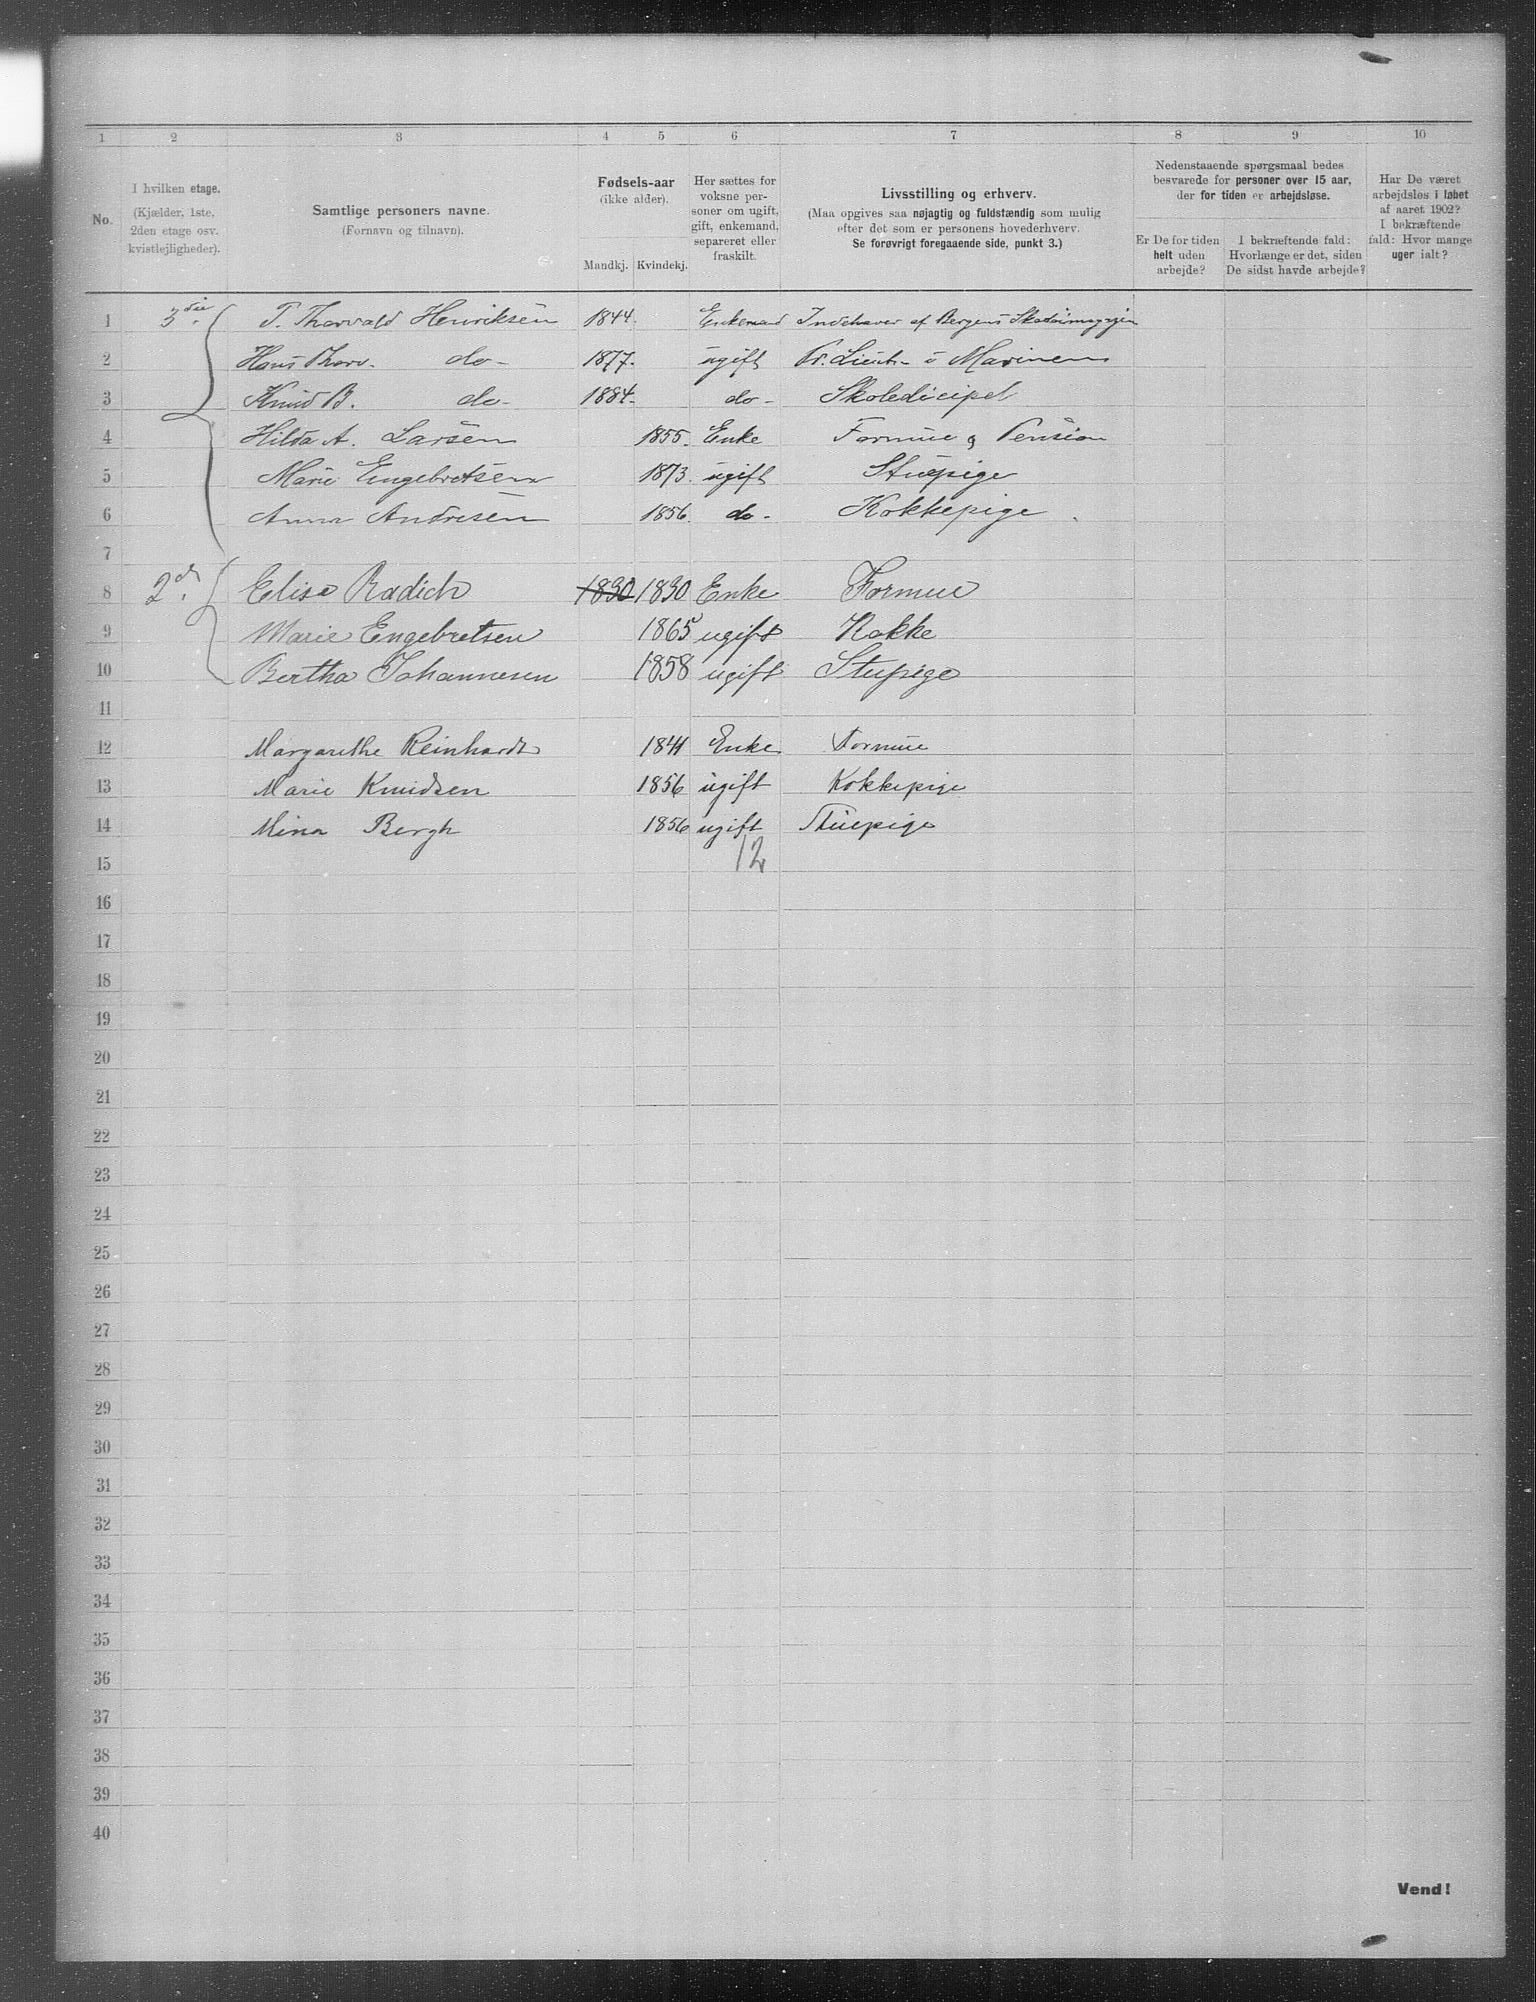 1 2 3 4 5 6 7 8 9 10
No.
I hvilken etage.
(Kjælder, 1ste,
2den etage osv.
kvistlejligheder).
Samtlige personers navne.
(Fornavn og tilnavn).
Fødsels-aar
(ikke alder).
Mandkj. Kvindekj.
Her sættes for
voksne per-
soner om ugift,
gift, enkemand,
separeret eller
fraskilt.
Livsstilling og erhverv.
(Maa opgives saa nøjagtig og fuldstændig som mulig
efter det som er personens hovederhverv.
Se forøvrigt foregaaende side, punkt 3.)
Nedenstaaende spørgsmaal bedes
besvarede for personer over 15 aar,
der for tiden er arbejdsløse.
Er De for tiden
helt uden
arbejde?
I bekræftende fald:
Hvorlænge er det, siden
De sidst havde arbejde?
Har De været
arbejdsløs i løbet
af aaret 1902?
I bekræftende
fald: Hvor mange
uger ialt?
1 3die T. Thorvald Henriksen 1844. Enkemand Indehaver af Bergens Skotøimagazin
2 Hans Thorv. do- 1877. ugift Pr. Lieut- i Marinen
3 Knud B. do- 1884- do- Skoledicipel
4 Hilda A. Larsen 1855. Enke Formue & Pension
5 Marie Engebretsen 1873. ugift Stuepige
6 Anna Andresen 1856. do- Kokkepige
7
8 2d. Elise Radich 1830 1830 Enke Formue
9 Marie Engebretsen 1865 ugift Kokke
10 Bertha Johannesen 1858 ugift Stupige
11
12 Margarethe Reinhardt 1841 Enke Formue
13 Marie Knudsen 1856 ugift Kokkepige
14 Mina Bergh 1856 ugift Stuepige
15 12
16
17
18
19
20
21
22
23
24
25
26
27
28
29
30
31
32
33
34
35
36
37
38
39
40
Vend!